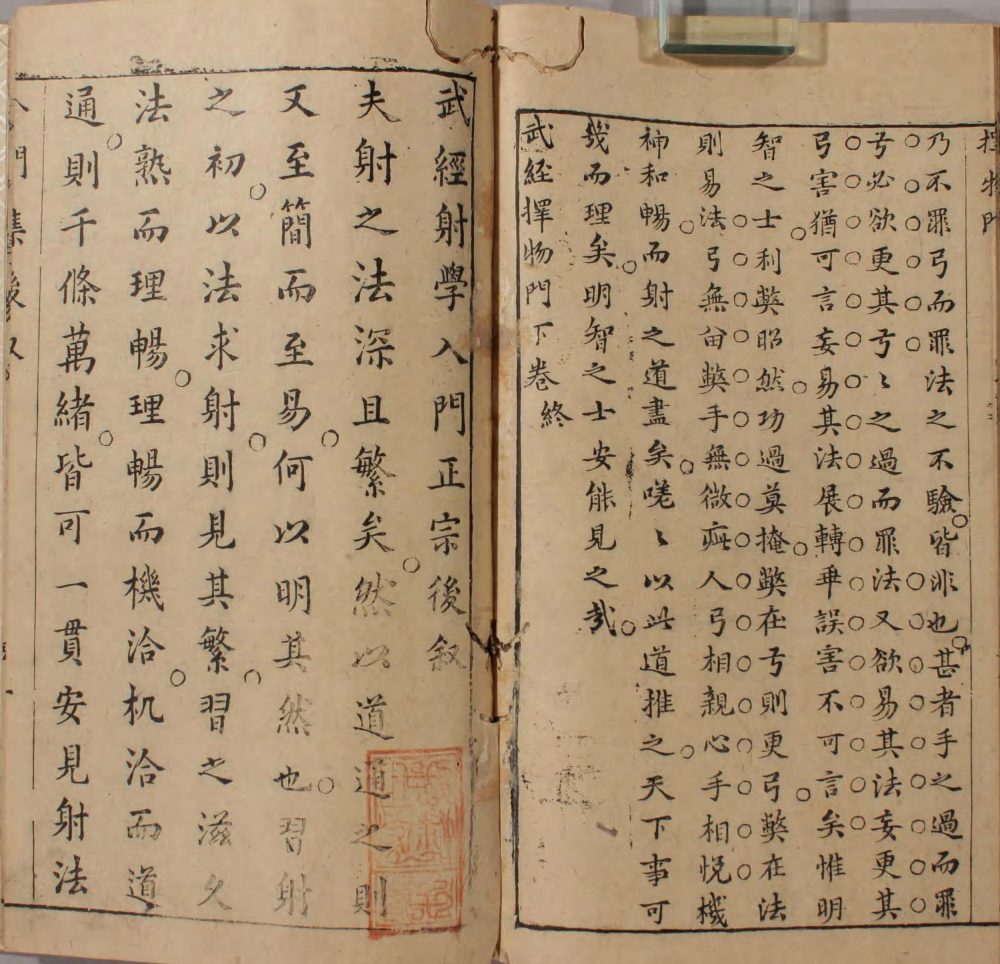 擇物門
乃不罪弓而罪法之不驗皆非也甚者手之過而罪
弓必欲更其弓〻之過而罪法又欲易其法妄更其
弓害猶可言妄易其法展轉乖誤害不可言矣惟明
智之士利獘昭然功過莫掩獘在弓則更弓獘在法
則易法弓無留獘手無微疵人弓相親心手相悅機
神和暢而射之道盡矣嗟〻以此道推之天下事可
幾而理矣明智之士安能見之哉
武經擇物門下卷終
武經射學入門正宗後叙
夫射之法深且繁矣然以道通之則
又至簡而至易何以明其然也習射
之初以法求射則見其繁習之滋久
法熟而理暢理暢而機洽机洽而道
通則千條萬緒皆可一貫安見射法